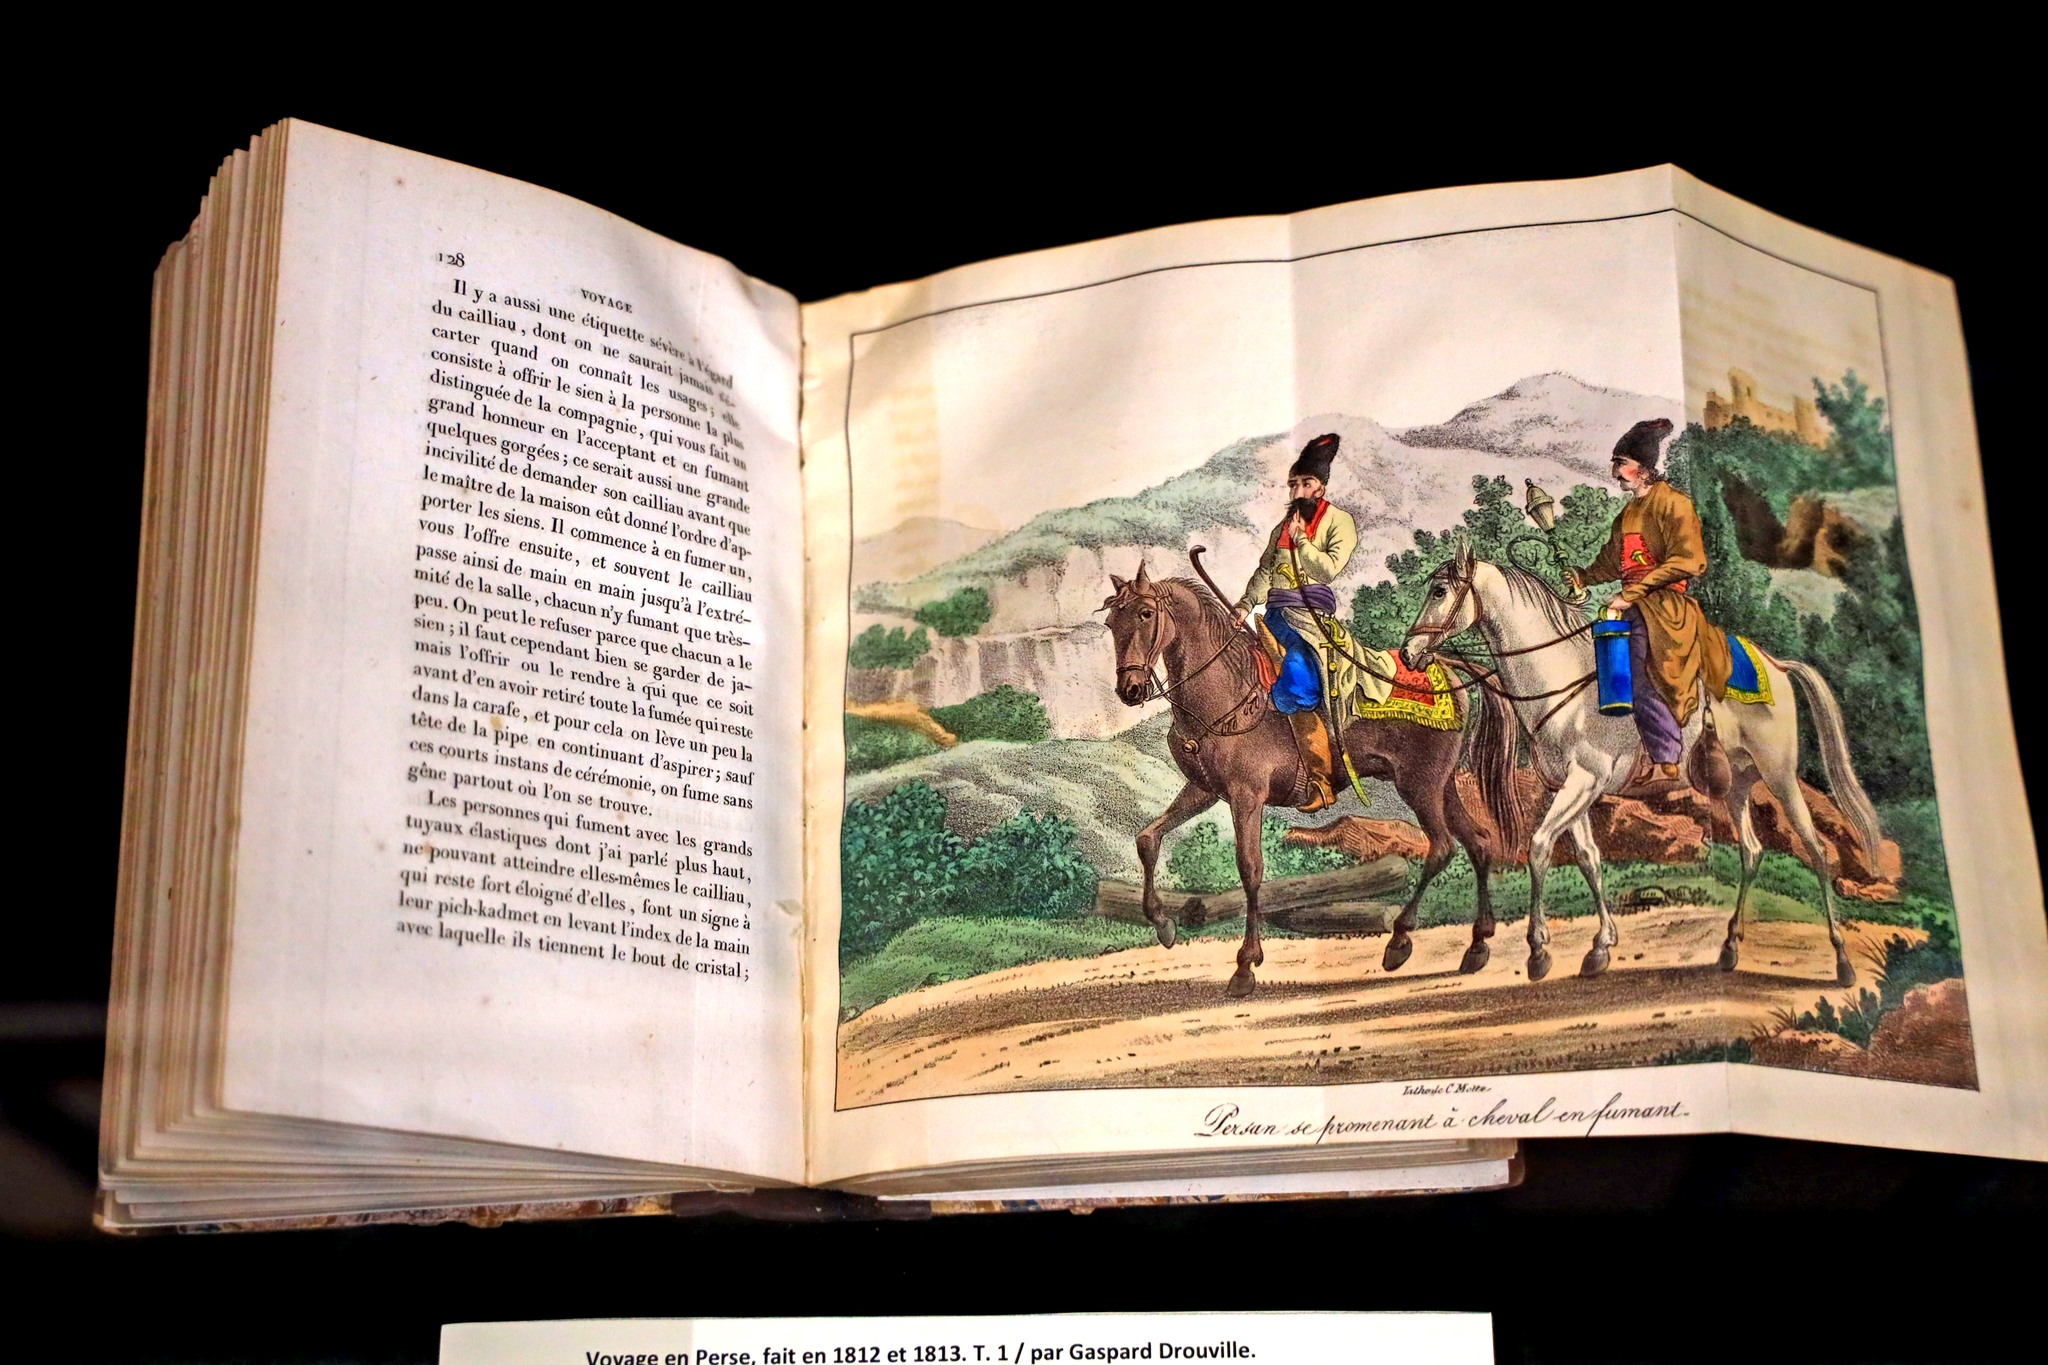 128
VOYAGE
Il y a aussi une étiquette sévère à l'égard
du cailliau, dont on ne saurait jamais s'é-
carter quand on connaît les usages; elle
consiste à offrir le sien à la personne la plus
distinguée de la compagnie, qui vous fait un
grand honneur en l'acceptant et en fumant
quelques gorgées; ce serait aussi une grande
incivilité de demander son cailliau avant que
le maître de la maison eût donné l'ordre d'ap-
porter les siens. Il commence à en fumer un,
vous l'offre ensuite, et souvent le cailliau
passe ainsi de main en main jusqu'à l'extré-
mité de la salle, chacun n'y fumant que très-
peu. On peut le refuser parce que chacun a le
sien; il faut cependant bien se garder de ja-
mais l'offrir ou le rendre à qui que ce soit
avant d'en avoir retiré toute la fumée qui reste
dans la carafe, et pour cela on lève un peu la
tête de la pipe en continuant d'aspirer; sauf
ces courts instans de cérémonie, on fume sans
gêne partout où l'on se trouve.
Les personnes qui fument avec les grands
tuyaux élastiques dont j'ai parlé plus haut,
ne pouvant atteindre elles-mêmes le cailliau,
qui reste fort éloigné d'elles, font un signe à
leur pich-kadmet en levant l'index de la main
avec laquelle ils tiennent le bout de cristal;
C Motte
Persan se promenant à cheval en fumant.
Voyage en Perse, fait en 1812 et 1813. T. 1 / par Gaspard Drouville.